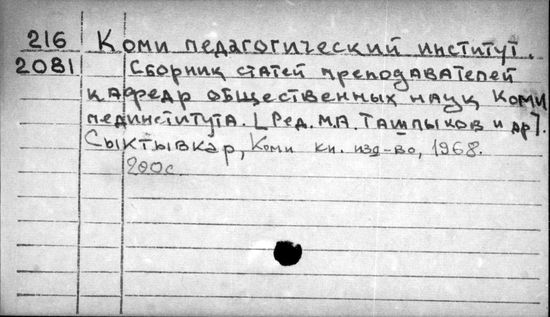 216 Коми педагогический институт.
2081 Сборник статей преподавателей
кафедр общественных наук Коми
пединститута. [Ред. М.А. Ташлыков и др].
Сыктывкар, Коми кн. изд-во, 1968.
200с.